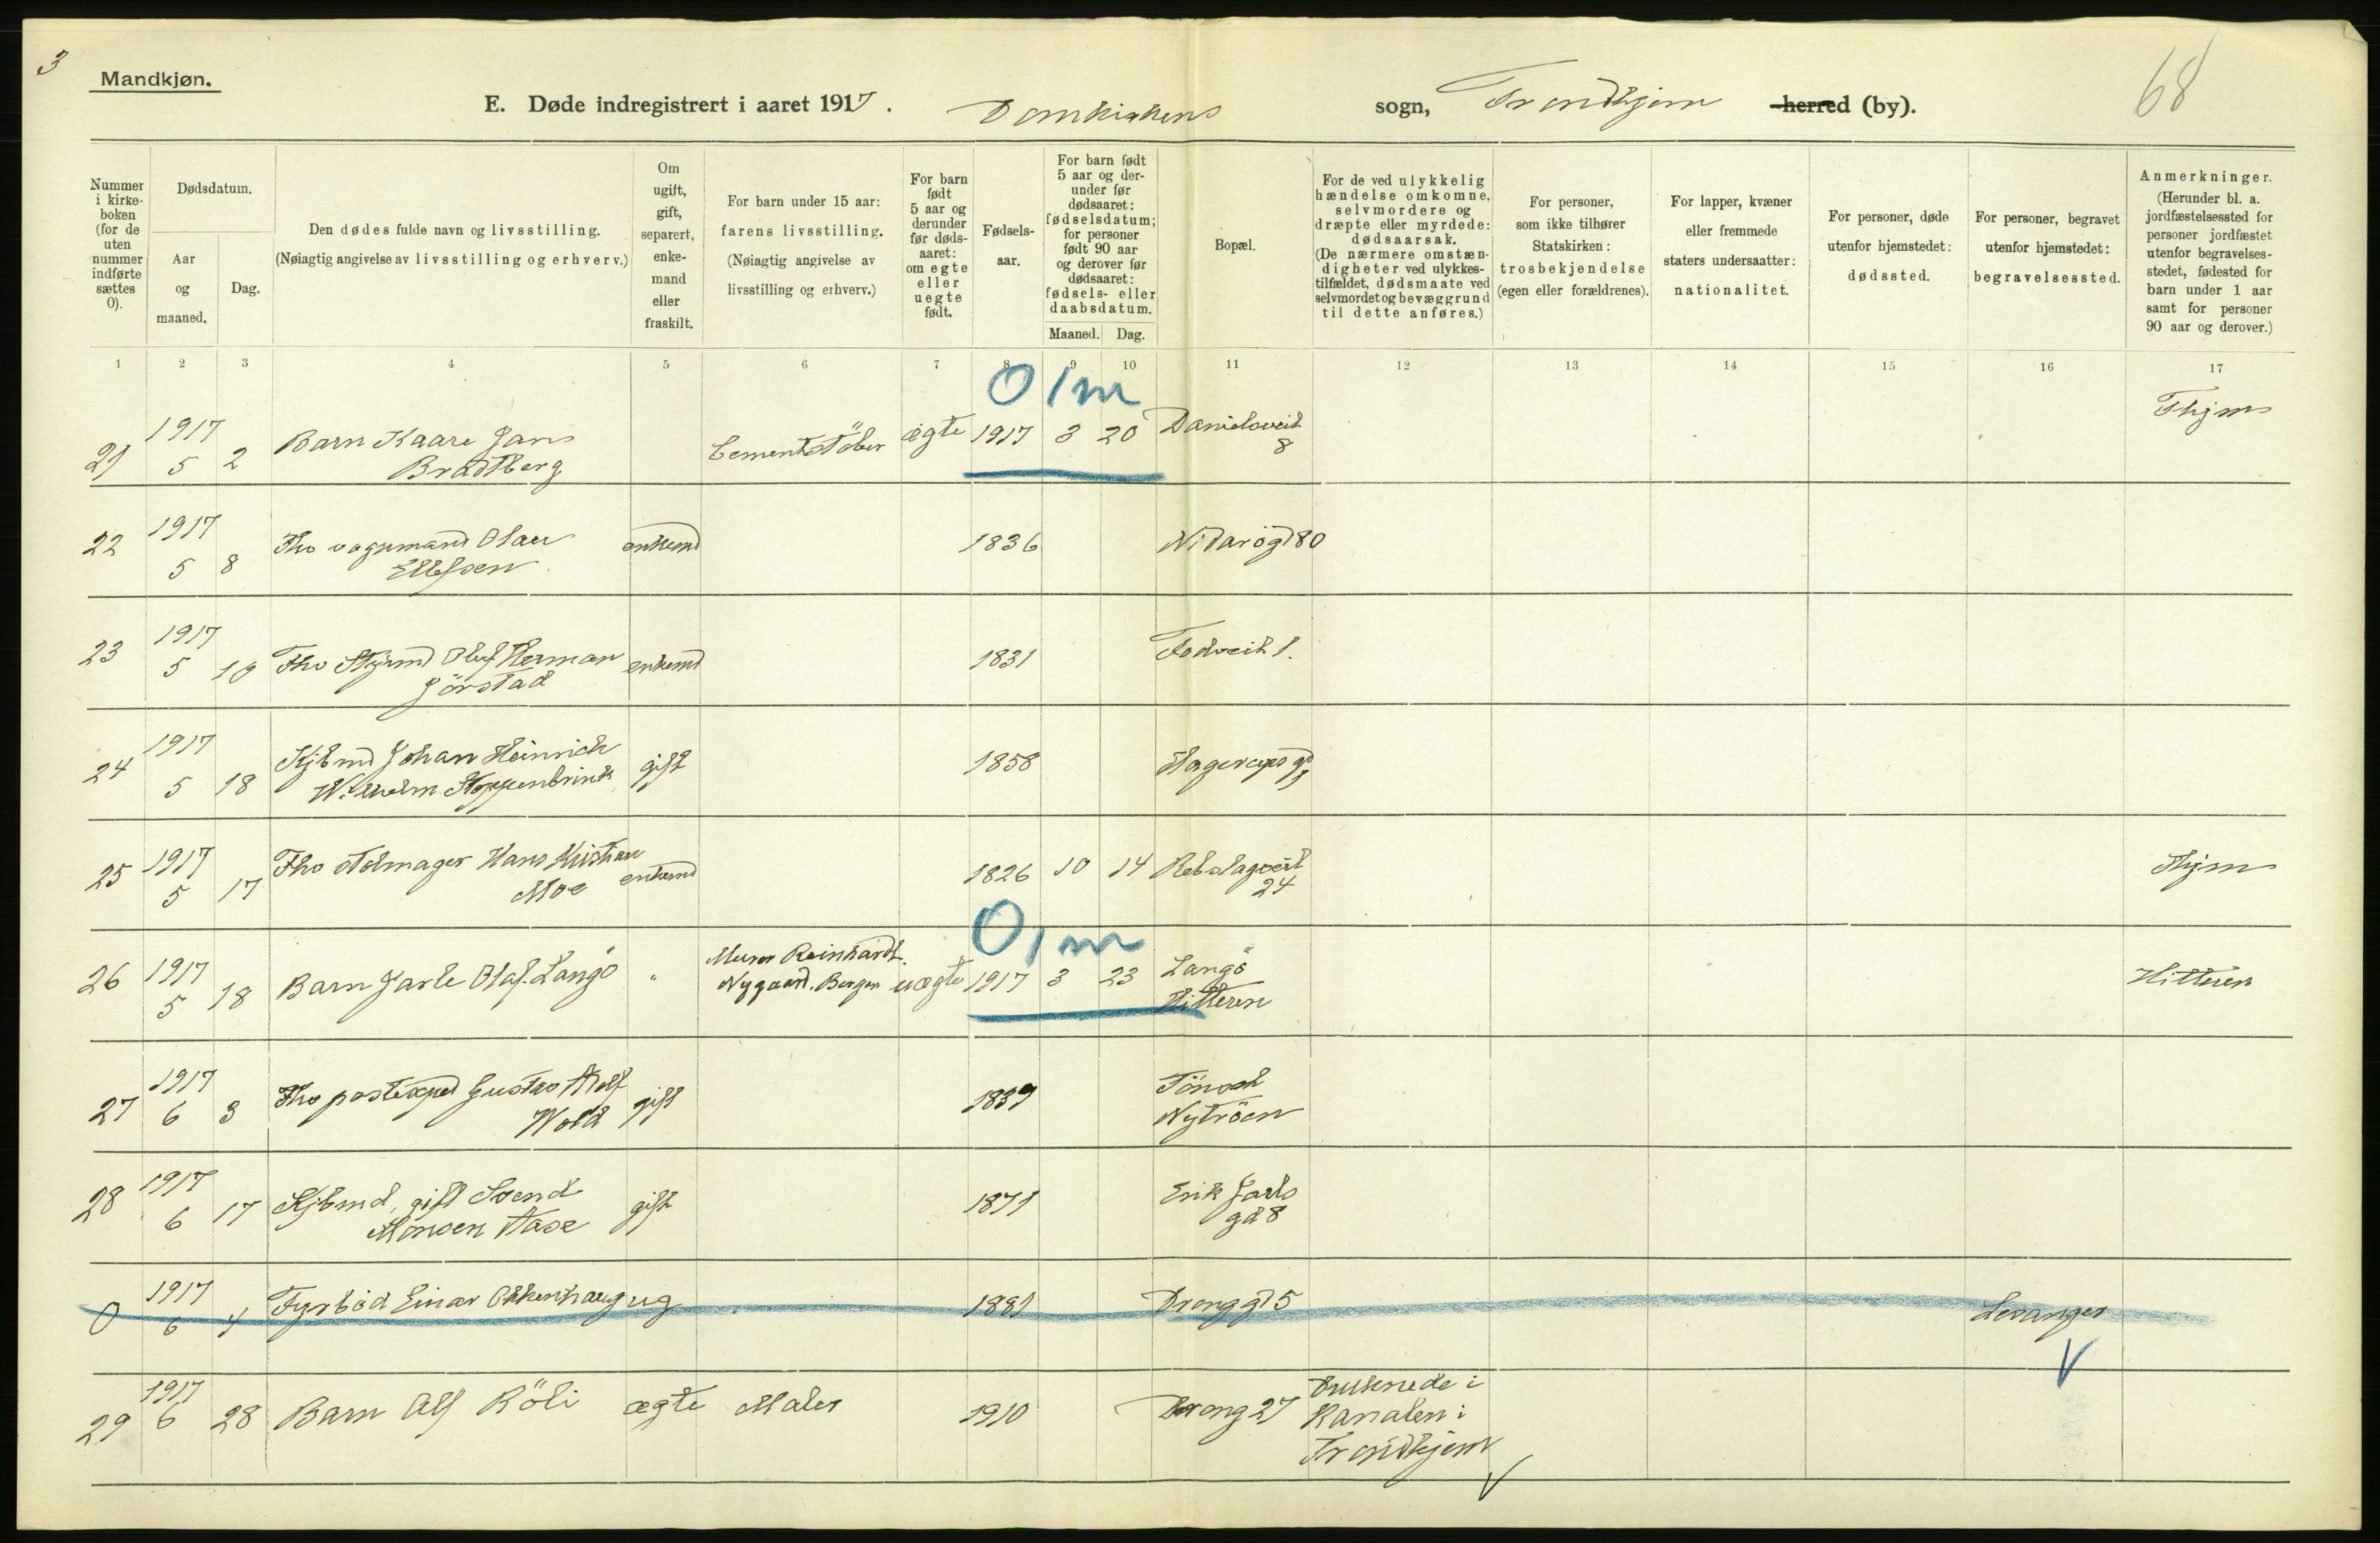 3
Mandkjøn.
E. Døde indregistrert i aaret 1917. Domkirkens sogn, Trondhjem herred (by).
68
Nummer i kirke-boken (for de uten nummer indførte sættes 0).
Dødsdatum.
Aar og maaned.
Dag.
Den dødes fulde navn og livsstilling.
(Nøiagtig angivelse av livsstilling og erhverv.)
Om ugift, gift, separert, enke-mand eller fraskilt.
For barn under 15 aar: farens livsstilling.
(Nøiagtig angivelse av livsstilling og erhverv.)
For barn født 5 aar og derunder før døds-aaret: om egte eller uegte født.
Fødsels-aar.
For barn født 5 aar og der-under før dødsaaret: fødselsdatum; for personer født 90 aar og derover før dødsaaret: fødsels- eller daabsdatum.
Maaned. Dag.
Bopæl.
For de ved ulykkelig hændelse omkomne, selvmordere og dræpte eller myrdede: dødsaarsak.
(De nærmere omstæn-digheter ved ulykkes-tilfældet, dødsmaate ved selvmordet og bevæggrund til dette anføres.)
For personer, som ikke tilhører Statskirken: trosbekjendelse (egen eller forældrenes).
For lapper, kvæner eller fremmede staters undersaatter: nationalitet.
For personer, døde utenfor hjemstedet: dødssted.
For personer, begravet utenfor hjemstedet: begravelsessted.
Anmerkninger.
(Herunder bl. a. jordfæstelsessted for personer jordfæstet utenfor begravelses-stedet, fødested for barn under 1 aar samt for personer 90 aar og derover.)
1 2 3 4 5 6 7 8 9 10 11 12 13 14 15 16 17
0 1 m
21 1917 5 2 Barn Kaare Jans Bradtberg Cementstøber ægte 1917 3 20 Danielsveit 8 Thjm
22 1917 5 8 Fho vognmand Olaus Ellefsen enkemd 1836 Nidarögd 80
23 1917 5 10 Fho Styrmd Oluf Herman Jörstad enkemd 1831 Fodveit 1.
24 1917 5 18 Kjbmd Johan Heinrich Wilhelm Hoppenbrink gift 1858
25 1917 5 17 Fho stolmager Hans Kristian Moe enkemd 1826 10 14 Rebslagveit 24 Thjm
0 1 m
26 1917 5 18 Barn Jarle Olaf Langö " Murer Reinhardt Nygaard. Bergen uægte 1917 3 23 Langö Hitteren Hitteren
27 1917 6 3 Fho postexped Gustav Adolf Wold gift 1839 Nytröen
28 1917 6 17 Kjbmd, gift Svend Monsen Aase gift 1871 Erik Jarls gd 8
0 1917 6 4 Fyrbød Einar Okkenhaug ug 1881 Drong gd 5 Levanger
V
29 1917 6 28 Barn Alf Röli ægte Maler 1910 Drong 27 Druknede i Kanalen i Trondhjem
V